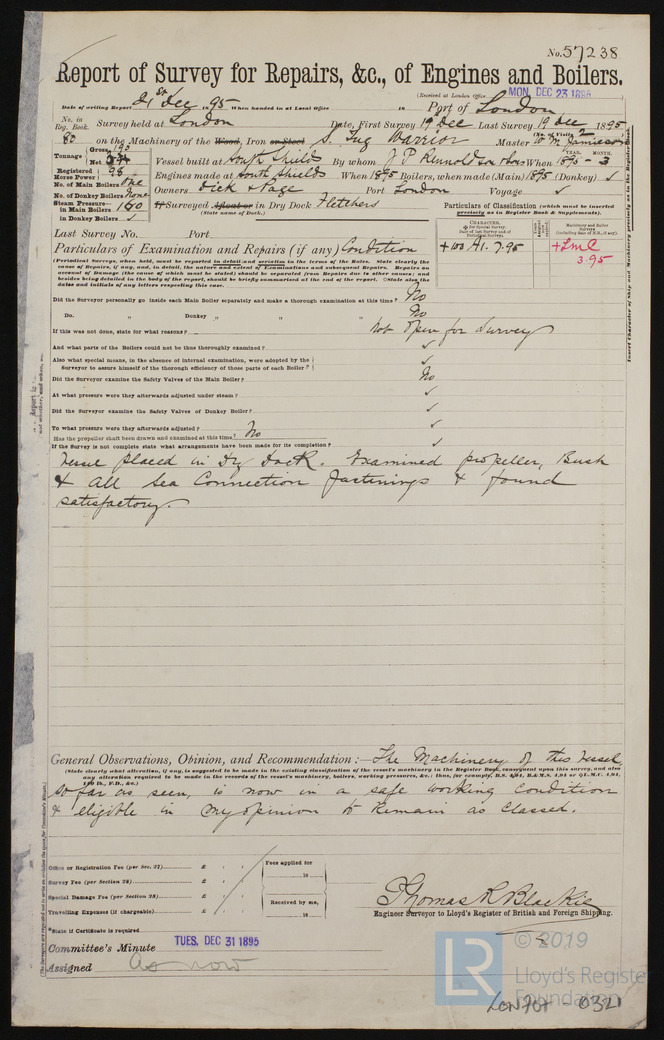 No. 57238
Report of Survey for Repairs, &c., of Engines and Boilers.
(Received at London Office MON. DEC 23 1895)
Date of writing Report 21st Dec 1895 When handed in at Local Office 18 Port of London
No. in Reg. Book. 80 Survey held at London Date, First Survey 19 Dec Last Survey 19 Dec 1895
(No. of Visits 2)
on the Machinery of the Wood, Iron or Steel S. Tug Warrior Master W. M. Jamieson
Tonnage Gross 192 Net
Vessel built at South Shields By whom J. P. Rennoldson & Sons When 1895 - 3
YEAR. MONTH.
Registered Horse Power 98
Engines made at South Shields When 1895 Boilers, when made (Main) 1895 (Donkey) ✓
No. of Main Boilers One
No. of Donkey Boilers None
Owners Dick & Page Port London Voyage ✓
Steam Pressure— in Main Boilers 160
in Donkey Boilers ✓
If Surveyed Afloat or in Dry Dock Fletchers
(State name of Dock.)
Particulars of Classification (which must be inserted precisely as in Register Book & Supplements).
CHARACTER.
Machinery and Boiler Surveys
+100 A1. 7.95
+LMC 3.95
Last Survey No. Port
Particulars of Examination and Repairs (if any) Condition
(Periodical Surveys, when held, must be reported in detail and seriatim in the terms of the Rules. State clearly the
cause of Repairs, if any, and, in detail, the nature and extent of Examinations and subsequent Repairs. Repairs on
account of Damage (the cause of which must be stated) should be separated from Repairs due to other causes;
besides being detailed in the body of the report, should be briefly summarised at the end of the report. State also the
dates and initials of any letters respecting this case.
Did the Surveyor personally go inside each Main Boiler separately and make a thorough examination at this time? No
Do. " Donkey " " " No
If this was not done, state for what reasons? Not open for Survey
And what parts of the Boilers could not be thus thoroughly examined? ✓
Also what special means, in the absence of internal examination, were adopted by the
Surveyor to assure himself of the thorough efficiency of those parts of each Boiler? ✓
Did the Surveyor examine the Safety Valves of the Main Boiler? No
At what pressure were they afterwards adjusted under steam? ✓
Did the Surveyor examine the Safety Valves of Donkey Boiler? ✓
To what pressure were they afterwards adjusted? ✓
Has the propeller shaft been drawn and examined at this time? No
If the Survey is not complete state what arrangements have been made for its completion? ✓
Vessel placed in Dry Dock. Examined propeller, Bush
& all sea Connection fastenings & found
satisfactory.
General Observations, Opinion, and Recommendation:— The Machinery of this Vessel
(State clearly what alteration, if any, is suggested to be made in the existing classification of the vessel's machinery in the Register Book, consequent upon this survey, and also
any alteration required to be made in the records of the vessel's machinery, boilers, working pressures, &c.: thus, for example, B.S. 4,91, B.&M.S. 4,91 or L.M.C. 4,91,
so far as seen, is now in a safe working condition
& eligible in my opinion to remain as Classed.
Office or Registration Fee (per Sec. 27) £ : :
Survey Fee (per Section 28) £ : :
Special Damage Fee (per Section 28) £ : :
Travelling Expenses (if chargeable) £ : :
Fees applied for
18
Received by me,
18
Thomas R Blackie
Engineer Surveyor to Lloyd's Register of British and Foreign Shipping.
*State if Certificate is required
Committee's Minute TUES. DEC 31 1895
Assigned as now
LR
© 2019
Lloyd's Register
Foundation
Insert Character of Ship and Machinery precisely as in the Register Book.